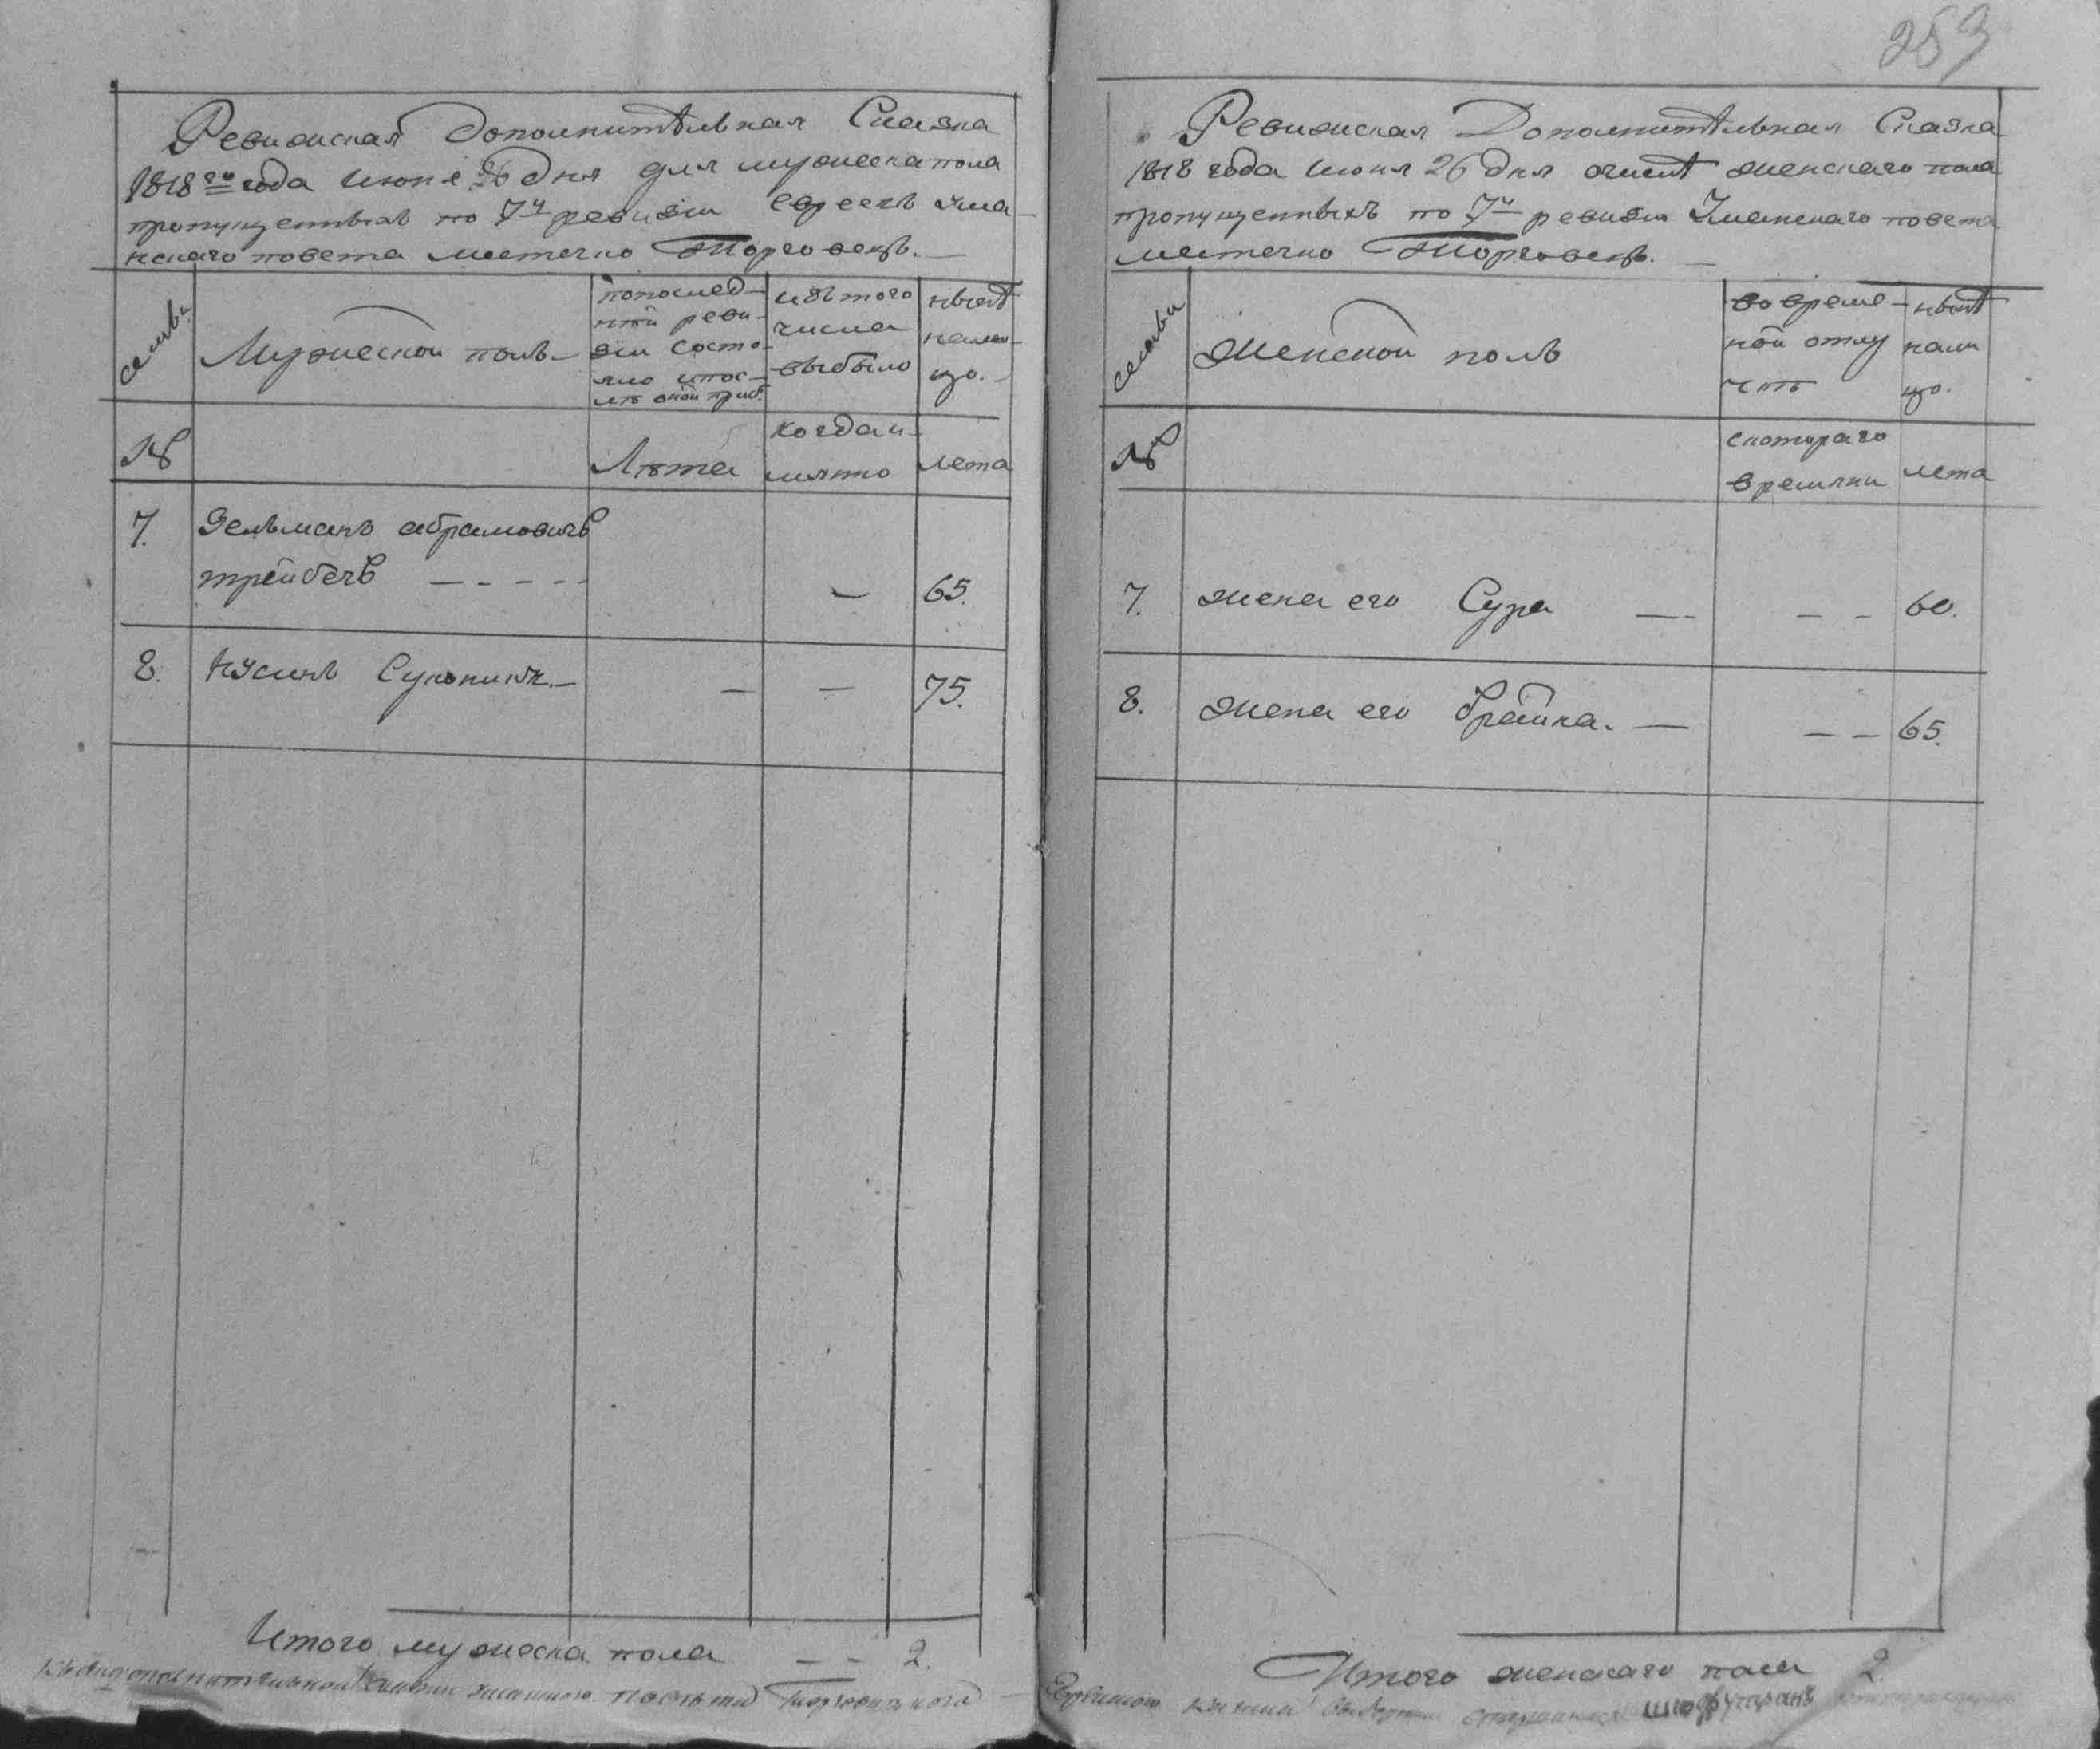 Ревижская дополнительная Сказка
1818го года июня 26 дня для мужеска пола
пропущенныхъ по 7й ревизии евреевъ Ума-
нскаго повета местечко Торговецъ.
семьи
Мужеской полъ
попослед-
ней реви-
зии состо-
яло
изъ того
числа
выбыло
ныне
налицо.
№
Лета
когда и-
мянно
лета
7. Зельманъ абрамовичъ
65.
8. Нусинъ
75.
Итого мужеска пола 2.
259
Ревижская Дополнительная Сказка
1818 года июня 26 дня женскаго пола
пропущенныхъ по 7й ревизии Уманскаго повета
местечко Торговецъ.
семьи
Женской полъ
во време-
ной отлу
чке
ныне
нали
цо.
№
с котораго
времяни
лета
7. жена его Сура 60.
8. жена его брайна. 65.
Итого женскаго пола 2.